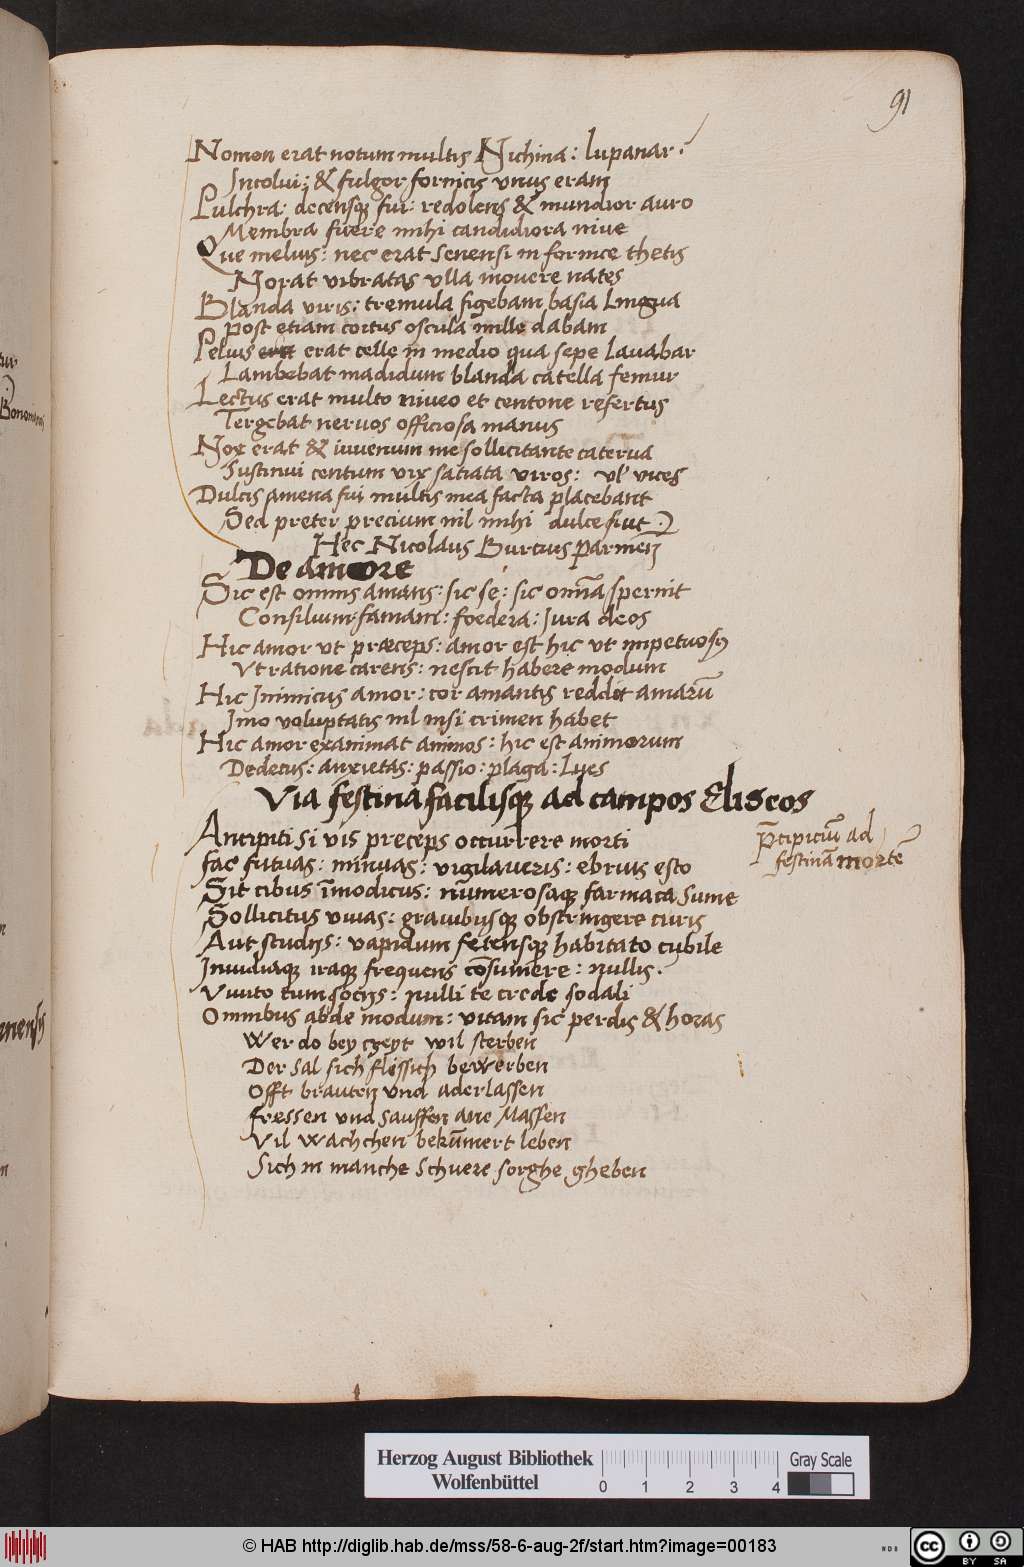 91
Nomen erat notum multis Nichina: lupanar.
Incolui: & fulgor fornicis unus eram
Pulchra decensq̃ fui: redolens & mundior auro
Membra fuere mihi candidiora nive
Que melius: nec erat Senensi in fornice thetis
Norat vibratas ulla movere nates
Blanda viris: tremula figebam basia Lingua
post etiam coitus oscula mille dabam
Peluis erat celle in medio qua sepe lauabar
Lambebat madidum blanda catella femur
Lectus erat multo niueo et centone refertus
Tergebat neruos officiosa manus
Nox erat & iuuenum me sollicitante caterua
Sustinui centum vix satiata viros: ul' vices
Dulcis amena fui multis mea facta placebant
Sed preter precium nil mihi dulce fiut
Hec Nicolaus Burtius Parmen̄
De amore
Sic est omnis amans: sic se: sic om̄a spernit
Consilium: famam: foedera: Jura deos
Hic amor ut præceps: amor est hic ut impetuosus
Vt ratione carens: nescit habere modum
Hic Inimicus amor: cor amantis reddit amarū
Imo voluptatis nil nisi crimen habet
Hic amor exanimat animos: hic est animorum
Dedecus: anxietas: passio: plaga: Lues
Via festina facilisq̃ ad campos Eliseos
Ancipiti si vis preceps occurrere morti
P̄cipiciū ad
festinā mortē
fac futuas: minuas: vigilaueris: ebrius esto
Sit cibus īmodicus: nūmerosaq̃ farmaca sume
Sollicitus viuas: grauibusq̃ obstringere curis
Aut studijs: vapidum fetensq̃ habitato cubile
Inuidiaq̃ iraq̃ frequens cōsumere: nullis.
Viuito tum socijs: nulli te crede sodali
Omnibus abde modum: vitam sic perdis & horas
Wer do bey czeyt wil sterben
Der sal sich flissich bewerben
Offt brauten und aderlassen
fressen und Sauffen ane Massen
Vil wachchen bekūmert leben
Sich in manche Schuere sorghe gheben
Bononi
Herzog August Bibliothek
Wolfenbüttel
0 1 2 3 4
Gray Scale
© HAB http://diglib.hab.de/mss/58-6-aug-2f/start.htm?image=00183
cc BY SA